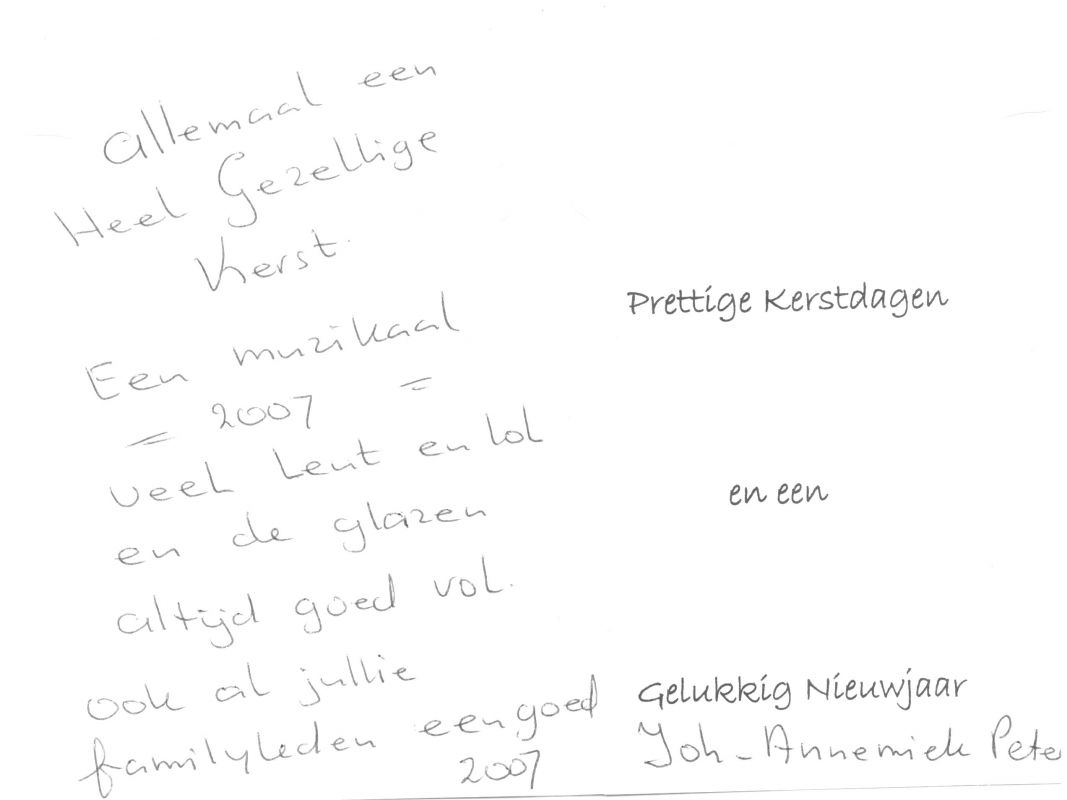 allemaal een
Heel Gezellige
Kerst.
Een muzikaal
= 2007 =
veel leut en lol
en de glazen
altijd goed vol.
ook al jullie
familyleden een goed
2007
Prettige Kerstdagen
en een
Gelukkig Nieuwjaar
Joh - Annemiek Pete